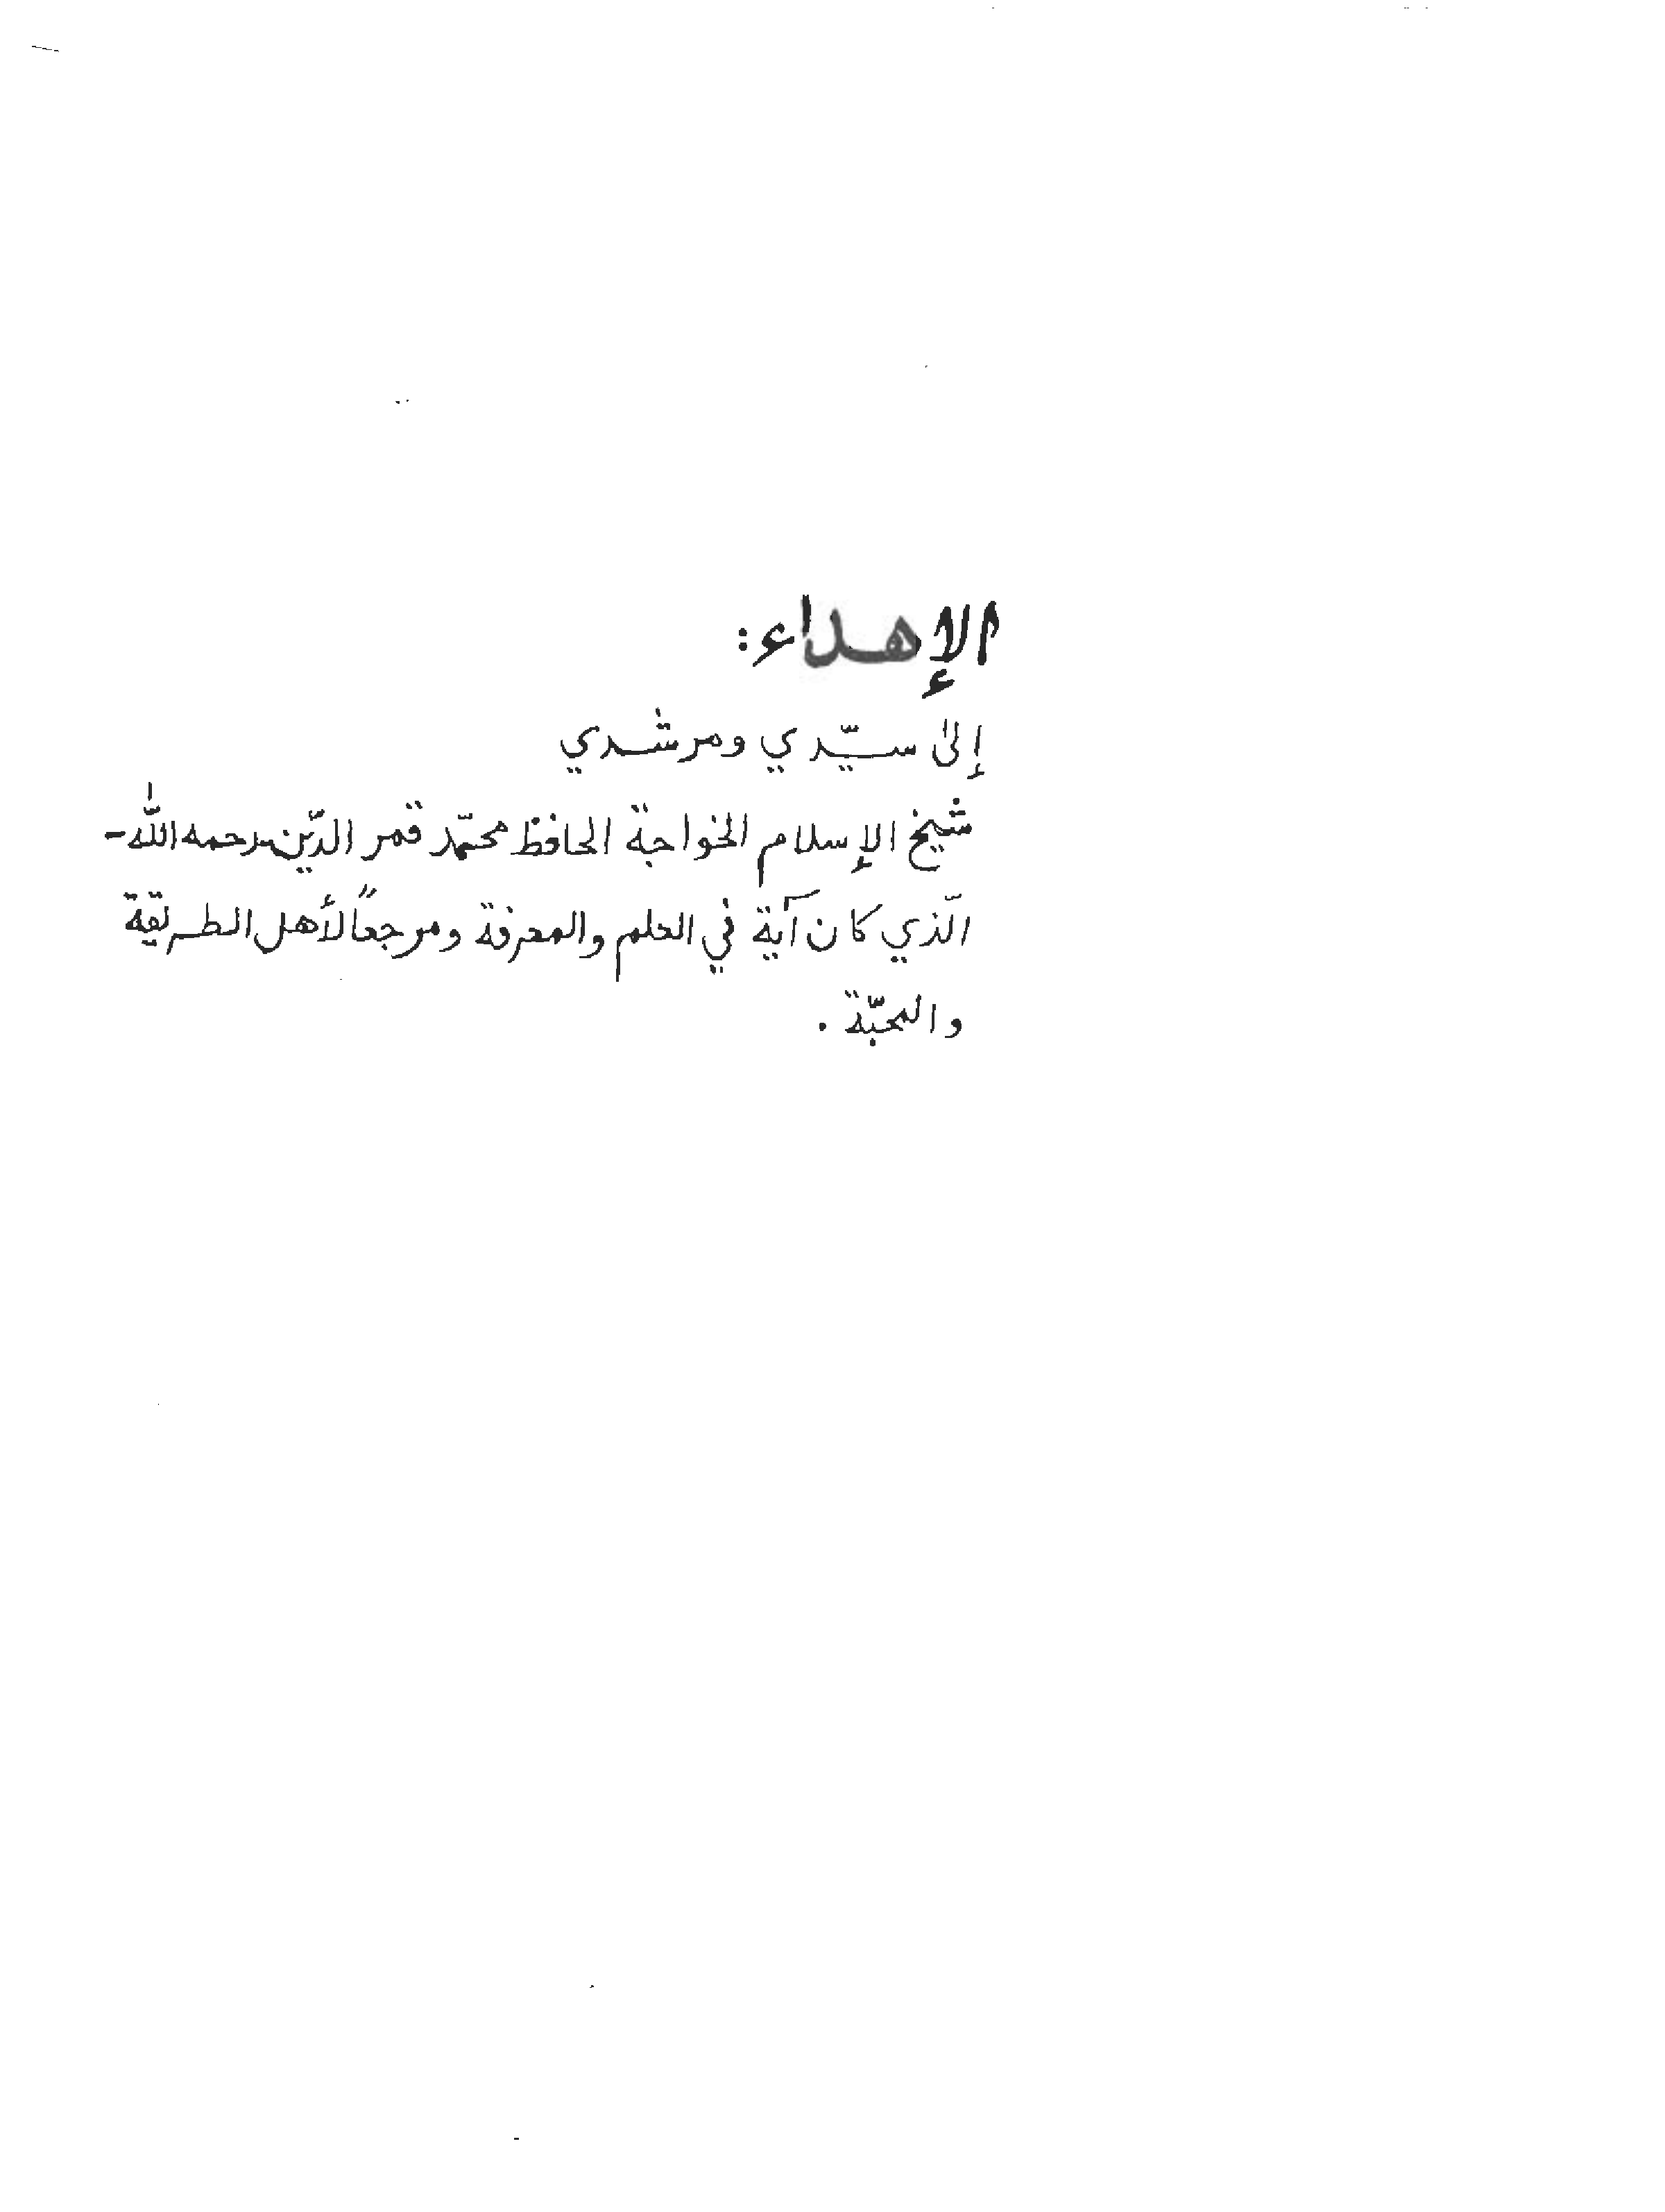 الإهداء:
إلىٰ سيّدي ومرشدي
شيخ الإسلام الخواجة الحافظ محمّد قمر الدّين-رحمه الله-
الّذي كان آية في العلم والمعرفة ومرجعاً لأهل الطريقة
والمحبّة .